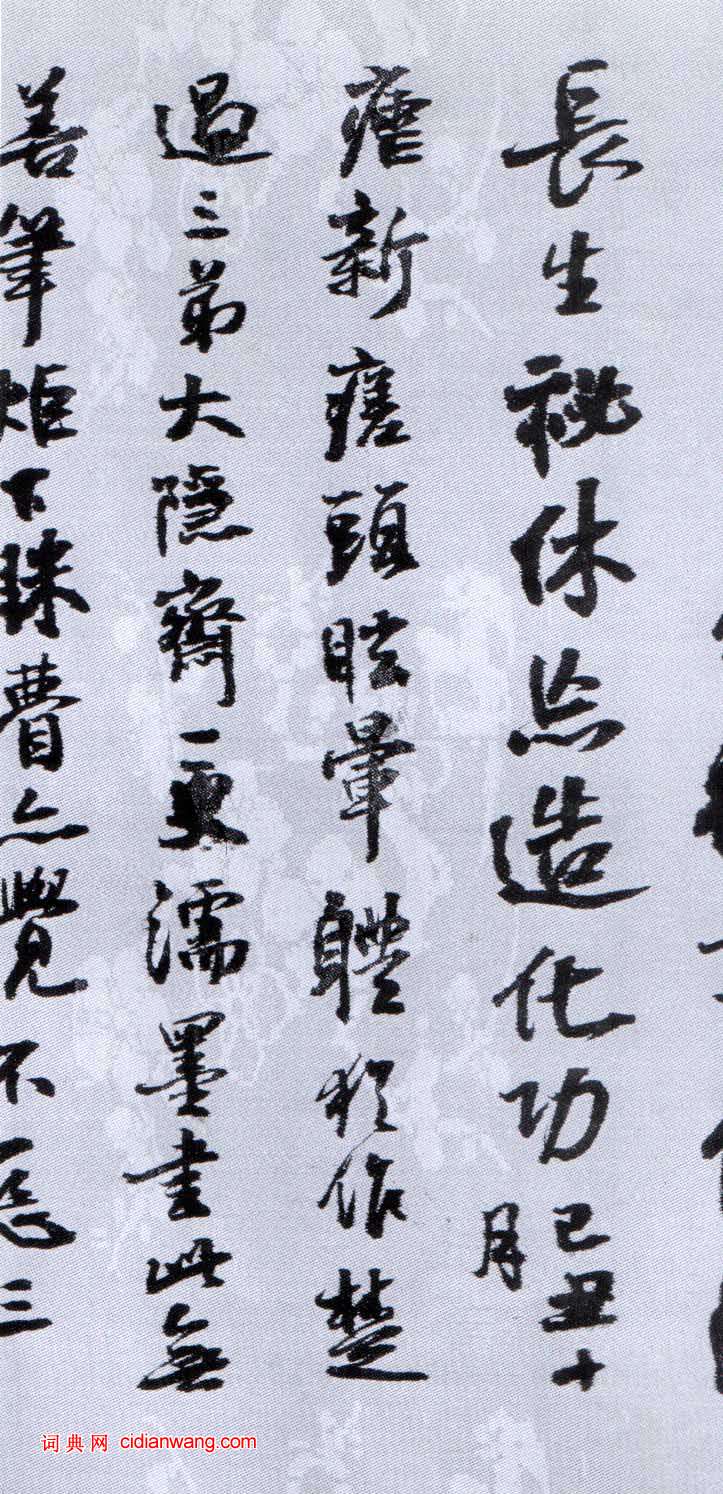 長生祕休造化功 己丑十月
瘧新瘥頭眩暈體猶作楚
過三弟大隱齋一更濡墨書此無
善筆炬下殊費亦覺不惡三
词典网 cidianwang.com